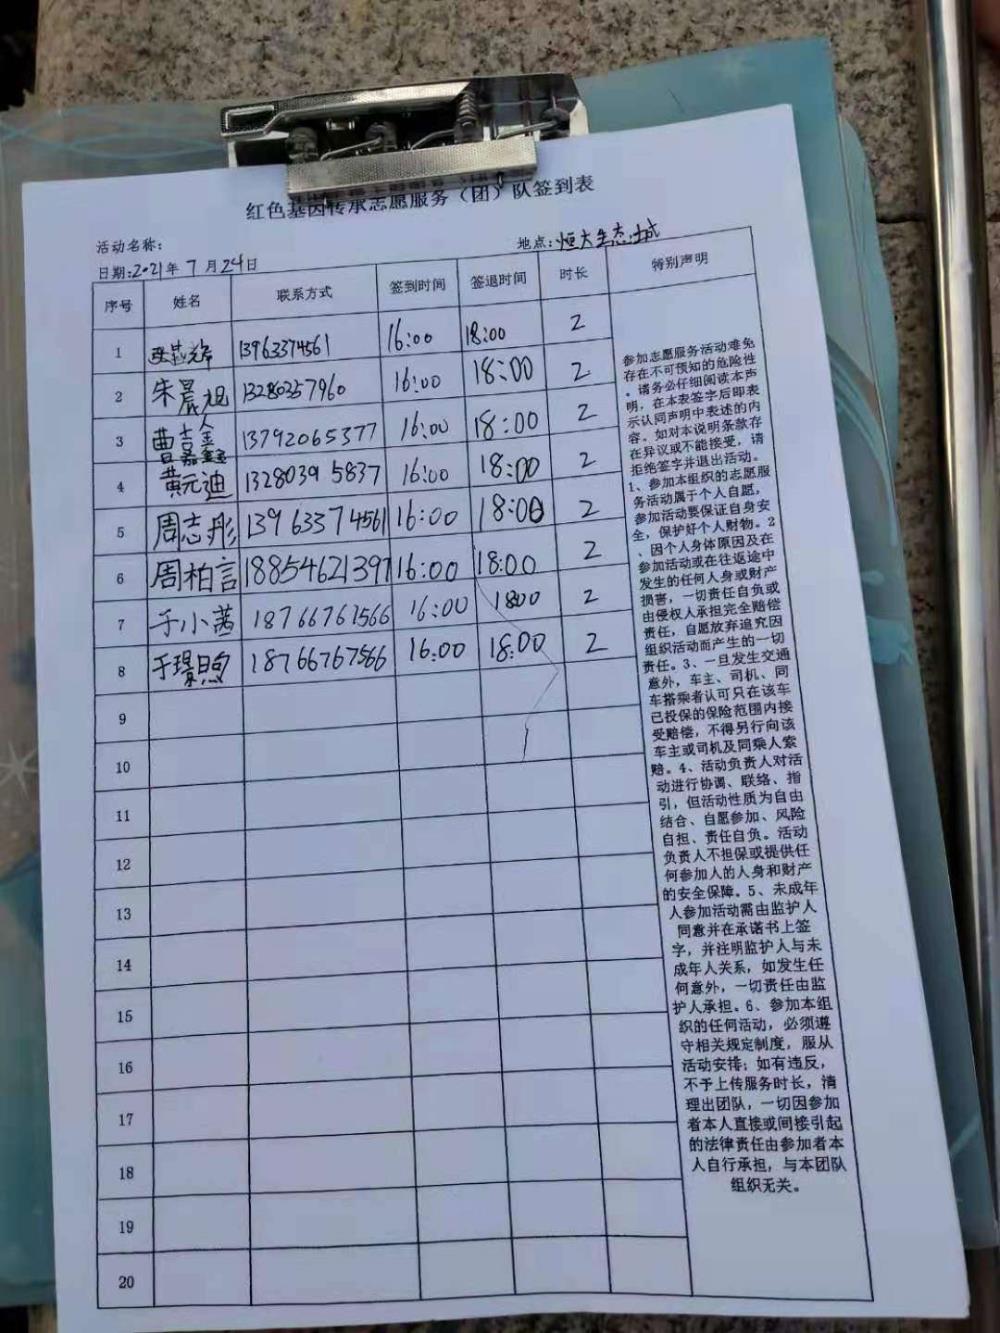 红色基因传承志愿服务（团）队签到表
活动名称：
地点：恒大生态城
日期：2021年7月24日
序号 姓名 联系方式 签到时间 签退时间 时长 特别声明
1 13963374561 16:00 18:00 2
2 朱晨旭 13280357960 16:00 18:00 2
3 曹嘉鑫 13792065377 16:00 18:00 2
4 黄元迪 13280395837 16:00 18:00 2
5 周志彤 13963374561 16:00 18:00 2
6 周柏言 18854621397 16:00 18:00 2
7 于小茜 18766761566 16:00 1800 2
8 于璟煦 18766767566 16:00 18:00 2
9
10
11
12
13
14
15
16
17
18
19
20
参加志愿服务活动难免
存在不可预知的危险性
。请务必仔细阅读本声
明，在本表签字后即表
示认同声明中表述的内
容。如对本说明条款存
在异议或不能接受，请
拒绝签字并退出活动。
1、参加本组织的志愿服
务活动属于个人自愿，
参加活动要保证自身安
全，保护好个人财物。2
、因个人身体原因及在
参加活动或在往返途中
发生的任何人身或财产
损害，一切责任自负或
由侵权人承担完全赔偿
责任，自愿放弃追究因
组织活动而产生的一切
责任。3、一旦发生交通
意外，车主、司机、同
车搭乘者认可只在该车
已投保的保险范围内接
受赔偿，不得另行向该
车主或司机及同乘人索
赔。4、活动负责人对活
动进行协调、联络、指
引，但活动性质为自由
结合、自愿参加、风险
自担、责任自负。活动
负责人不担保或提供任
何参加人的人身和财产
的安全保障。5、未成年
人参加活动需由监护人
同意并在承诺书上签
字，并注明监护人与未
成年人关系，如发生任
何意外，一切责任由监
护人承担。6、参加本组
织的任何活动，必须遵
守相关规定制度，服从
活动安排；如有违反，
不予上传服务时长，清
理出团队，一切因参加
者本人直接或间接引起
的法律责任由参加者本
人自行承担，与本团队
组织无关。